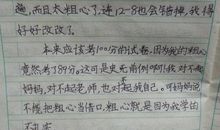 题,而且太粗心了,连12-8也会错掉,我得
好好改改了。
本来应该考100分的试卷,因为我的粗心
竟然考了89分。这可是史无前例啊!我对不起
妈妈,对不起老师,也对起我自己。可妈妈说
不能把粗心当借口,粗心就是因为我学的